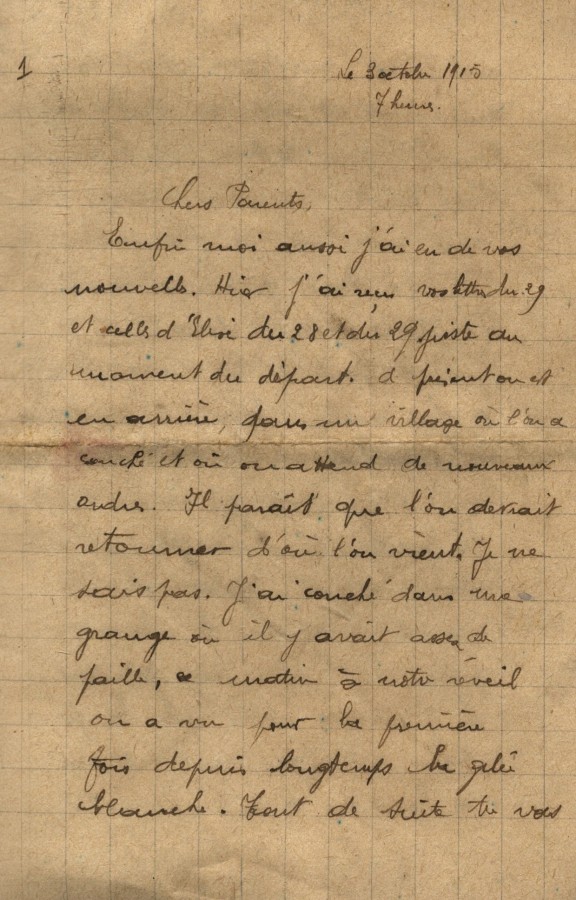 1
Le 3 octobre 1915
7 heures.
Chers Parents,
Enfin moi aussi j'ai eu de vos
nouvelles. Hier j'ai reçu vos lettres du 29
et celles d'Elise du 28 et du 29 juste au
moment du départ. à présent on est
en arrière, dans un village où l'on a
couché et où on attend de nouveaux
ordres. Il paraît que l'on devrait
retourner d'où l'on vient. Je ne
sais pas. J'ai couché dans une
grange où il y avait assez de
paille, ce matin à notre réveil
on a vu pour la première
fois depuis longtemps la gelée
blanche. Tout de suite tu vas